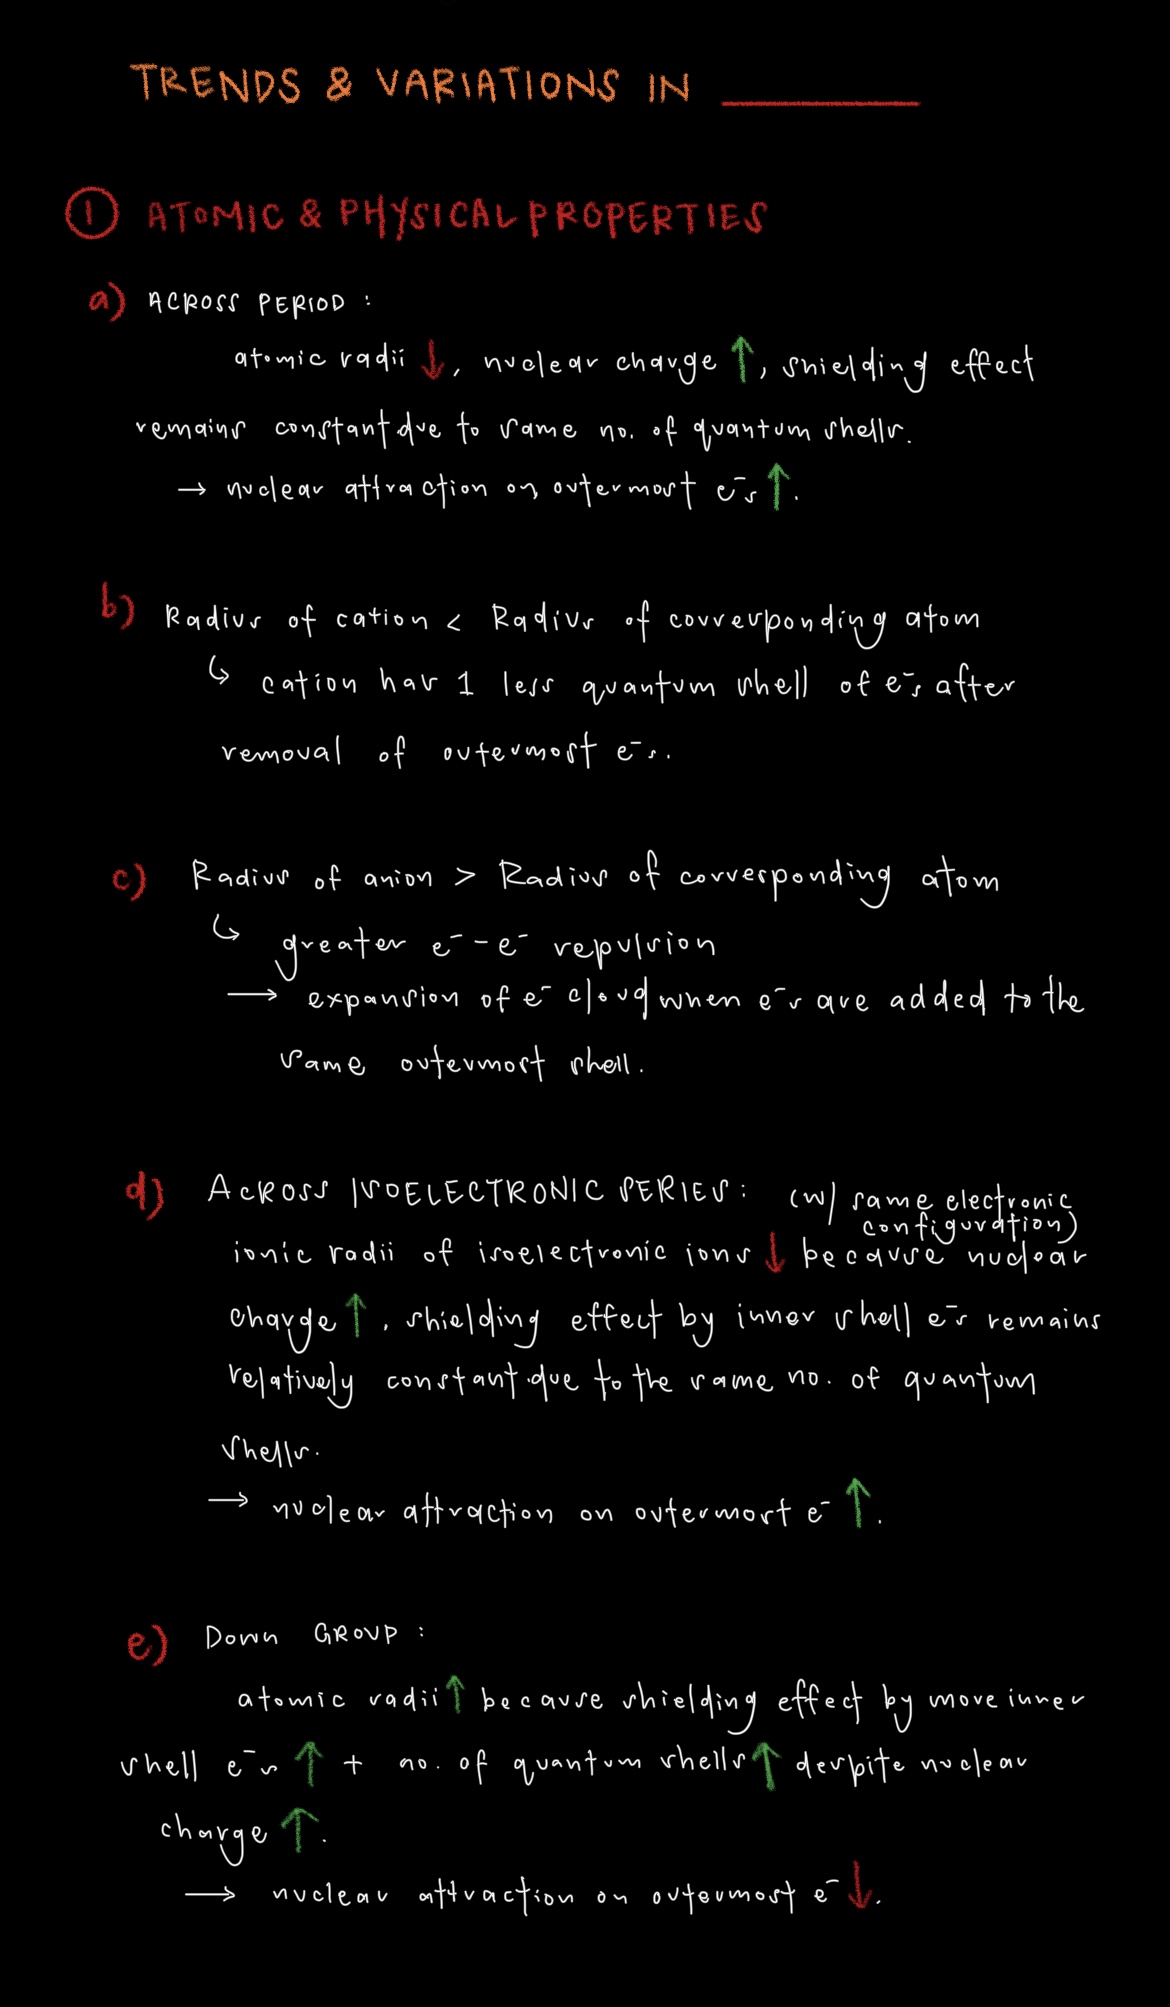 TRENDS & VARIATIONS IN ________
① ATOMIC & PHYSICAL PROPERTIES
a) ACROSS PERIOD :
atomic radii ↓, nuclear charge ↑, shielding effect
remains constant due to same no. of quantum shells.
→ nuclear attraction on outermost e⁻s ↑.
b) Radius of cation < Radius of corresponding atom
↳ cation has 1 less quantum shell of e⁻s after
removal of outermost e⁻s.
c) Radius of anion > Radius of corresponding atom
↳ greater e⁻ - e⁻ repulsion
→ expansion of e⁻ cloud when e⁻s are added to the
same outermost shell.
d) ACROSS ISOELECTRONIC SERIES : (w/ same electronic
configuration)
ionic radii of isoelectronic ions ↓ because nuclear
charge ↑, shielding effect by inner shell e⁻s remains
relatively constant due to the same no. of quantum
shells.
→ nuclear attraction on outermost e⁻ ↑.
e) DOWN GROUP :
atomic radii ↑ because shielding effect by more inner
shell e⁻s ↑ + no. of quantum shells ↑ despite nuclear
charge ↑.
→ nuclear attraction on outermost e⁻ ↓.